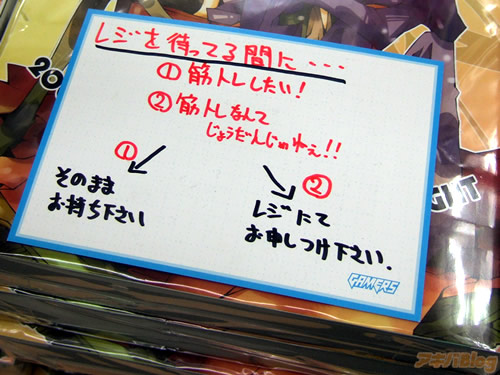 レジを待ってる間に・・・
①筋トレしたい！
②筋トレなんて
じょうだんじゃねぇ!!
①
そのまま
お持ち下さい
②
レジにて
お申しつけ下さい.
GAMERS
20
GHT
アキバBlog